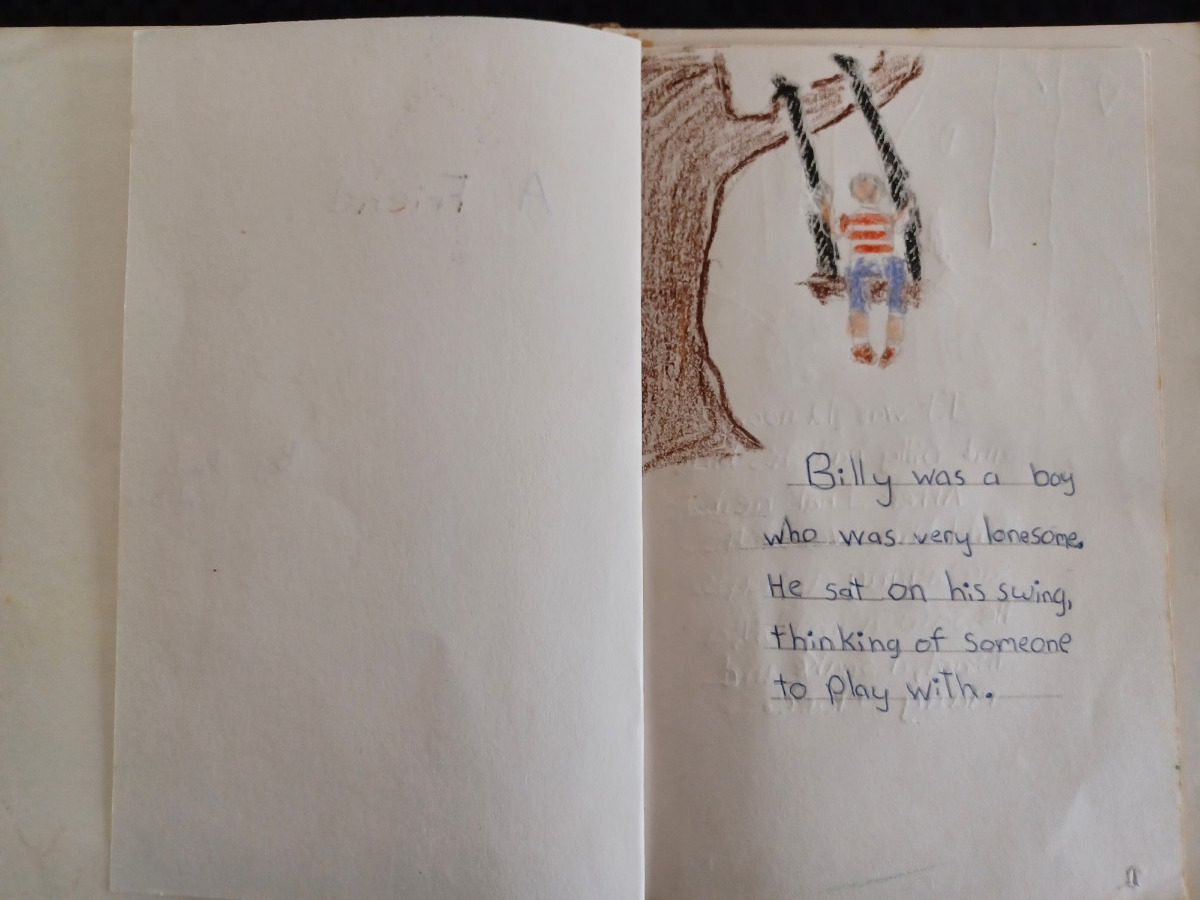 A Friend
Billy was a boy
who was very lonesome.
He sat on his swing,
thinking of someone
to play with.